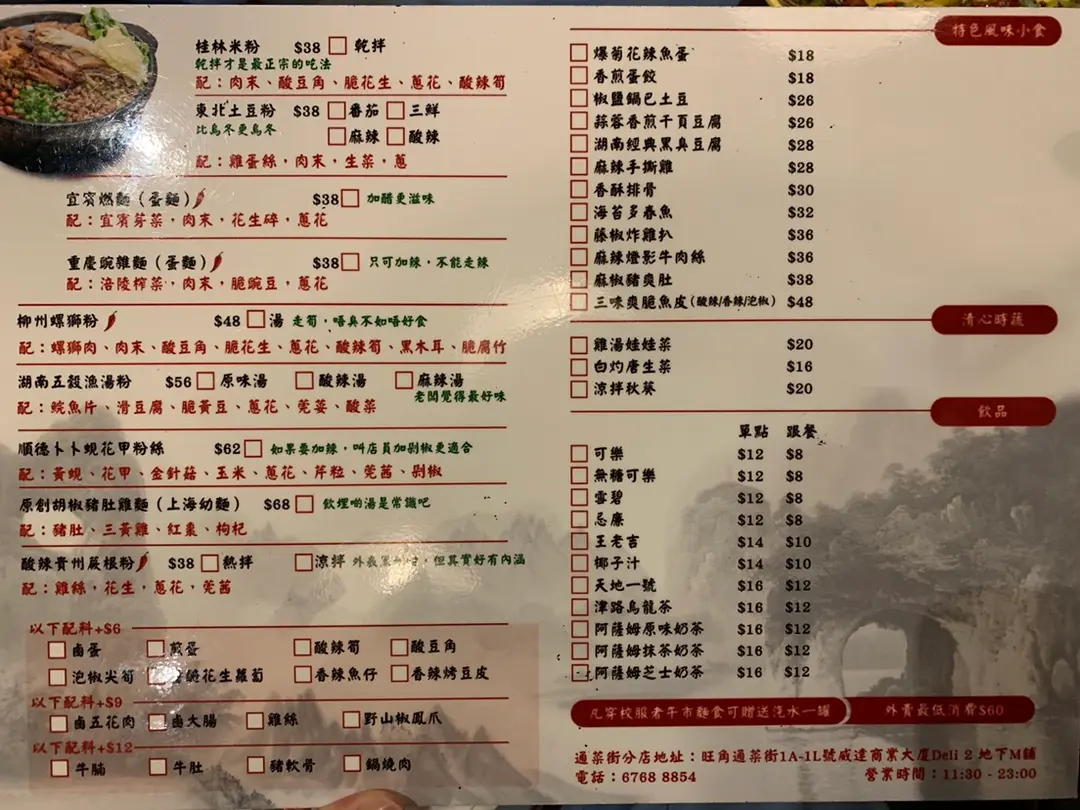 桂林米粉 $38 乾拌
乾拌才是最正宗的吃法
配：肉末、酸豆角、脆花生、蔥花、酸辣筍
東北土豆粉 $38 番茄 三鮮
比烏冬更烏冬 麻辣 酸辣
配：雞蛋絲，肉末，生菜，蔥
宜賓燃麵（蛋麵） $38 加醋更滋味
配：宜賓芽菜，肉末，花生碎，蔥花
重慶豌雜麵（蛋麵） $38 只可加辣，不能走辣
配：涪陵榨菜，肉末，脆豌豆，蔥花
柳州螺獅粉 $48 湯 走筍，唔臭不如唔好食
配：螺獅肉、肉末、酸豆角、脆花生、蔥花、酸辣筍、黑木耳、脆腐竹
湖南五穀漁湯粉 $56 原味湯 酸辣湯 麻辣湯
老闆覺得最好味
配：鯇魚片、滑豆腐、脆黃豆、蔥花、芫荽、酸菜
順德卜卜蜆花甲粉絲 $62 如果要加辣，叫店員加剁椒更適合
配：黃蜆、花甲、金針菇、玉米、蔥花、芹粒、芫茜、剁椒
原創胡椒豬肚雞麵（上海幼麵） $68 飲埋啲湯是常識吧
配：豬肚、三黃雞、紅棗、枸杞
酸辣貴州蕨根粉 $38 熱拌 涼拌 外表黑，但其實好有內涵
配：雞絲，花生，蔥花，芫茜
以下配料+$6
鹵蛋 煎蛋 酸辣筍 酸豆角
泡椒尖筍 花生蘿蔔 香辣魚仔 香辣烤豆皮
以下配料+$9
鹵五花肉 鹵大腸 雞絲 野山椒鳳爪
以下配料+$12
牛腩 牛肚 豬軟骨 鍋燒肉
特色風味小食
爆菊花辣魚蛋 $18
香煎蛋餃 $18
椒鹽鍋巴土豆 $26
蒜蓉香煎千頁豆腐 $26
湖南經典黑臭豆腐 $28
麻辣手撕雞 $28
香酥排骨 $30
海苔多春魚 $32
藤椒炸雞扒 $36
麻辣燈影牛肉絲 $36
麻椒豬爽肚 $38
三味爽脆魚皮（酸辣/香辣/泡椒） $48
清心時蔬
雞湯娃娃菜 $20
白灼唐生菜 $16
涼拌秋葵 $20
飲品
單點 跟餐
可樂 $12 $8
無糖可樂 $12 $8
雪碧 $12 $8
忌廉 $12 $8
王老吉 $14 $10
椰子汁 $14 $10
天地一號 $16 $12
津路烏龍茶 $16 $12
阿薩姆原味奶茶 $16 $12
阿薩姆抹茶奶茶 $16 $12
阿薩姆芝士奶茶 $16 $12
凡穿校服者午市麵食可贈送汽水一罐 外賣最低消費$60
通菜街分店地址：旺角通菜街1A-1L號威達商業大廈Deli 2 地下M舖
電話：6768 8854 營業時間：11:30 - 23:00